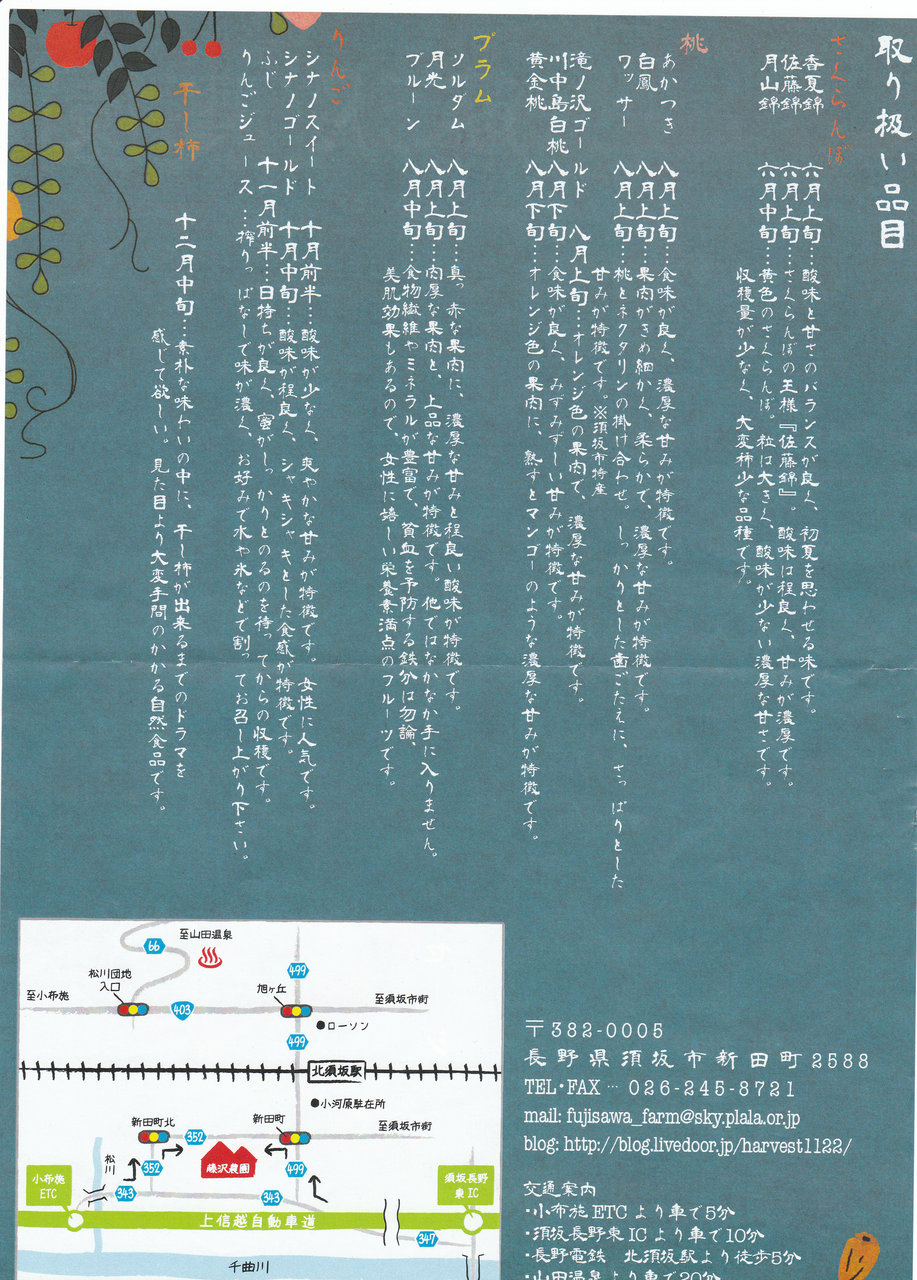 取り扱い品目
さくらんぼ
香夏錦 六月上旬…酸味と甘さのバランスが良く、初夏を思わせる味です。
佐藤錦 六月上旬…さくらんぼの王様『佐藤錦』。酸味は程良く、甘みが濃厚です。
月山錦 六月中旬…黄色のさくらんぼ。粒は大きく、酸味が少ない濃厚な甘さです。
収穫量が少なく、大変柿少な品種です。
桃
あかつき 八月上旬…食味が良く、濃厚な甘みが特徴です。
白鳳 八月上旬…果肉がきめ細かく、柔らかで、濃厚な甘みが特徴です。
ワッサー 八月上旬…桃とネクタリンの掛け合わせ。しっかりとした歯ごたえに、さっぱりとした
甘みが特徴です。※須坂市特産
滝ノ沢ゴールド 八月上旬…オレンジ色の果肉で、濃厚な甘みが特徴です。
川中島白桃 八月下旬…食味が良く、みずみずしい甘みが特徴です。
黄金桃 八月下旬…オレンジ色の果肉に、熟すとマンゴーのような濃厚な甘みが特徴です。
プラム
ソルダム 八月上旬…真っ赤な果肉に、濃厚な甘みと程良い酸味が特徴です。
月光 八月上旬…肉厚な果肉と、上品な甘みが特徴です。他ではなかなか手に入りません。
プルーン 八月中旬…食物繊維やミネラルが豊富で、貧血を予防する鉄分は勿論、
美肌効果もあるので、女性に嬉しい栄養素満点のフルーツです。
りんご
シナノスイート 十月前半…酸味が少なく、爽やかな甘みが特徴です。女性に人気です。
シナノゴールド 十月中旬…酸味が程良く、シャキシャキとした食感が特徴です。
ふじ 十一月前半…日持ちが良く、蜜がしっかりとのるのを待ってからの収穫です。
りんごジュース…搾りっぱなしで味が濃く、お好みで水や氷などで割ってお召し上がり下さい。
干し柿
十二月中旬…素朴な味わいの中に、干し柿が出来るまでのドラマを
感じて欲しい。見た目より大変手間のかかる自然食品です。
至山田温泉
66
499
松川団地
入口
旭ヶ丘
至小布施
403
至須坂市街
ローソン
499
北須坂駅
小河原駐在所
新田町北
352
新田町
至須坂市街
松川
352
藤沢農園
499
小布施
ETC
343
343
須坂長野
東IC
上信越自動車道
347
千曲川
〒382-0005
長野県須坂市新田町2588
TEL・FAX … 026-245-8721
mail: fujisawa_farm@sky.plala.or.jp
blog: http://blog.livedoor.jp/harvest1122/
交通案内
・小布施ETCより車で5分
・須坂長野東ICより車で10分
・長野電鉄 北須坂駅より徒歩5分
・山田温泉より車で20分